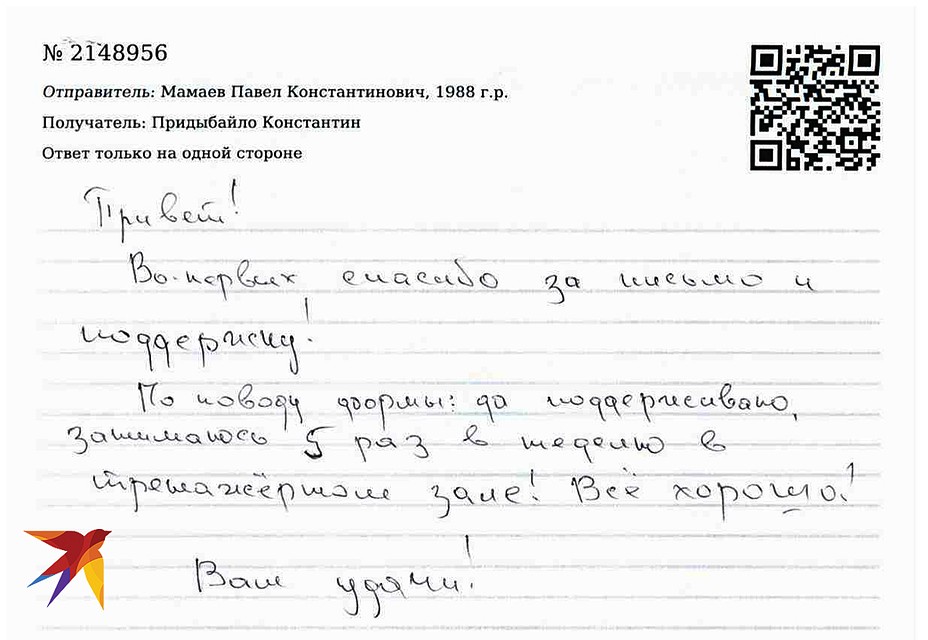 № 2148956
Отправитель: Мамаев Павел Константинович, 1988 г.р.
Получатель: Придыбайло Константин
Ответ только на одной стороне
Привет!
Во-первых спасибо за письмо и
поддержку!
По поводу формы: да поддерживаю,
занимаюсь 5 раз в неделю в
тренажёрном зале! Всё хорошо!
Вам удачи!